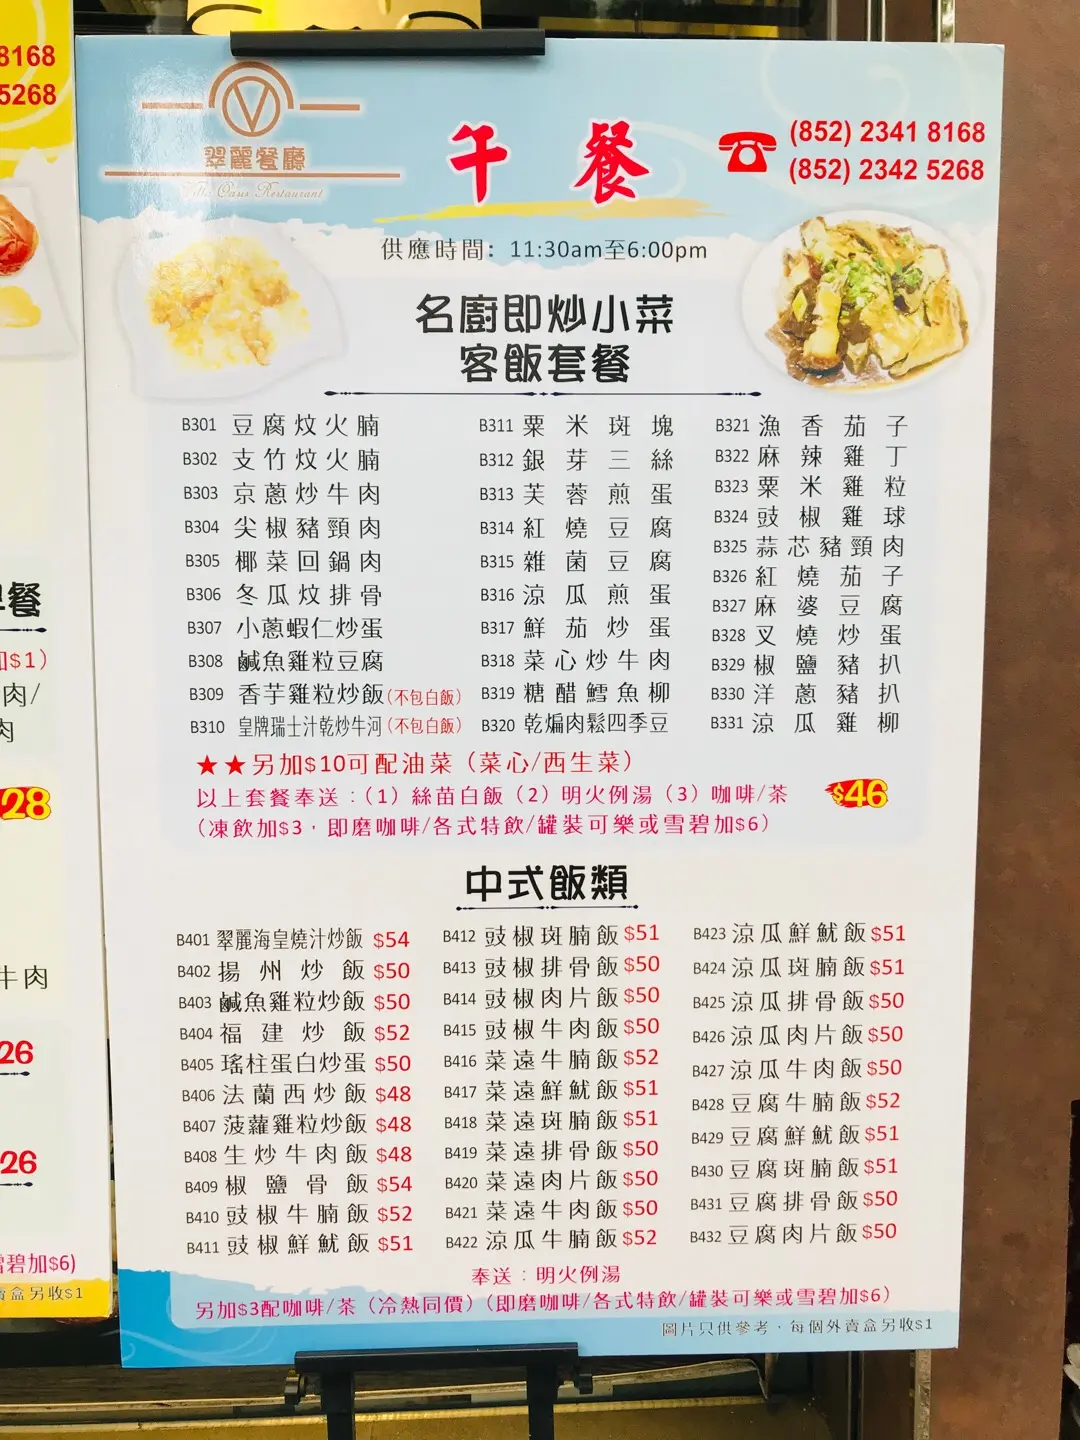 8168
5268
翠麗餐廳
Villa Oasis Restaurant
午餐
(852) 2341 8168
(852) 2342 5268
供應時間：11:30am至6:00pm
名廚即炒小菜
客飯套餐
B301 豆腐炆火腩
B302 支竹炆火腩
B303 京蔥炒牛肉
B304 尖椒豬頸肉
B305 椰菜回鍋肉
B306 冬瓜炆排骨
B307 小蔥蝦仁炒蛋
B308 鹹魚雞粒豆腐
B309 香芋雞粒炒飯(不包白飯)
B310 皇牌瑞士汁乾炒牛河(不包白飯)
B311 粟米斑塊
B312 銀芽三絲
B313 芙蓉煎蛋
B314 紅燒豆腐
B315 雜菌豆腐
B316 涼瓜煎蛋
B317 鮮茄炒蛋
B318 菜心炒牛肉
B319 糖醋鱈魚柳
B320 乾煸肉鬆四季豆
B321 漁香茄子
B322 麻辣雞丁
B323 粟米雞粒
B324 豉椒雞球
B325 蒜芯豬頸肉
B326 紅燒茄子
B327 麻婆豆腐
B328 叉燒炒蛋
B329 椒鹽豬扒
B330 洋蔥豬扒
B331 涼瓜雞柳
★★另加$10可配油菜（菜心/西生菜）
以上套餐奉送：（1）絲苗白飯（2）明火例湯（3）咖啡/茶
（凍飲加$3，即磨咖啡/各式特飲/罐裝可樂或雪碧加$6）
$46
中式飯類
B401 翠麗海皇燒汁炒飯 $54
B402 揚州炒飯 $50
B403 鹹魚雞粒炒飯 $50
B404 福建炒飯 $52
B405 瑤柱蛋白炒蛋 $50
B406 法蘭西炒飯 $48
B407 菠蘿雞粒炒飯 $48
B408 生炒牛肉飯 $48
B409 椒鹽骨飯 $54
B410 豉椒牛腩飯 $52
B411 豉椒鮮魷飯 $51
B412 豉椒斑腩飯 $51
B413 豉椒排骨飯 $50
B414 豉椒肉片飯 $50
B415 豉椒牛肉飯 $50
B416 菜遠牛腩飯 $52
B417 菜遠鮮魷飯 $51
B418 菜遠斑腩飯 $51
B419 菜遠排骨飯 $50
B420 菜遠肉片飯 $50
B421 菜遠牛肉飯 $50
B422 涼瓜牛腩飯 $52
B423 涼瓜鮮魷飯 $51
B424 涼瓜斑腩飯 $51
B425 涼瓜排骨飯 $50
B426 涼瓜肉片飯 $50
B427 涼瓜牛肉飯 $50
B428 豆腐牛腩飯 $52
B429 豆腐鮮魷飯 $51
B430 豆腐斑腩飯 $51
B431 豆腐排骨飯 $50
B432 豆腐肉片飯 $50
奉送：明火例湯
另加$3配咖啡/茶（冷熱同價）（即磨咖啡/各式特飲/罐裝可樂或雪碧加$6）
圖片只供參考，每個外賣盒另收$1
餐
$1）
肉/
肉
28
牛肉
26
26
雪碧加$6)
賣盒另收$1